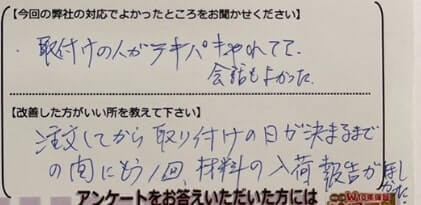 【今回の弊社の対応でよかったところをお聞かせください】
・取付けの人がテキパキやれてて
会話もよかった。
【改善した方がいい所を教えて下さい】
注文してから取り付けの日が決まるまで
の間にもう1回、材料の入荷報告が欲しかった
アンケートをお答えいただいた方には